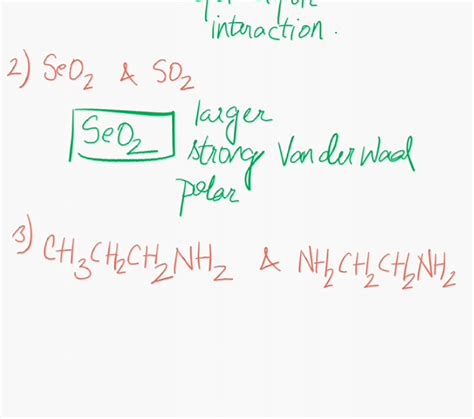 interaction.
2) SeO2 & SO2
SeO2
larger
strong Van der Waal
polar
3) CH3CH2CH2NH2 & NH2CH2CH2NH2